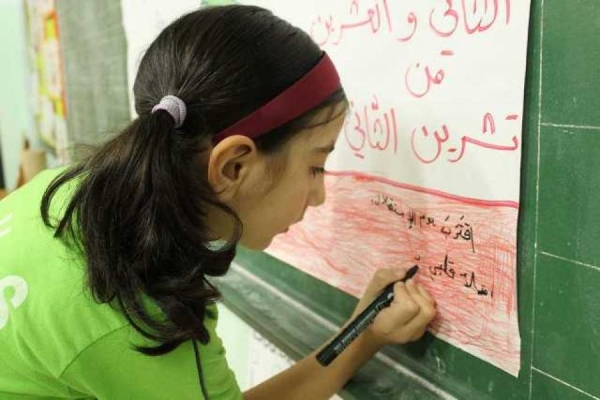 الثاني و العشرين
من
تشرين الثّاني
اقترب يوم الإستقلال،
قلبي